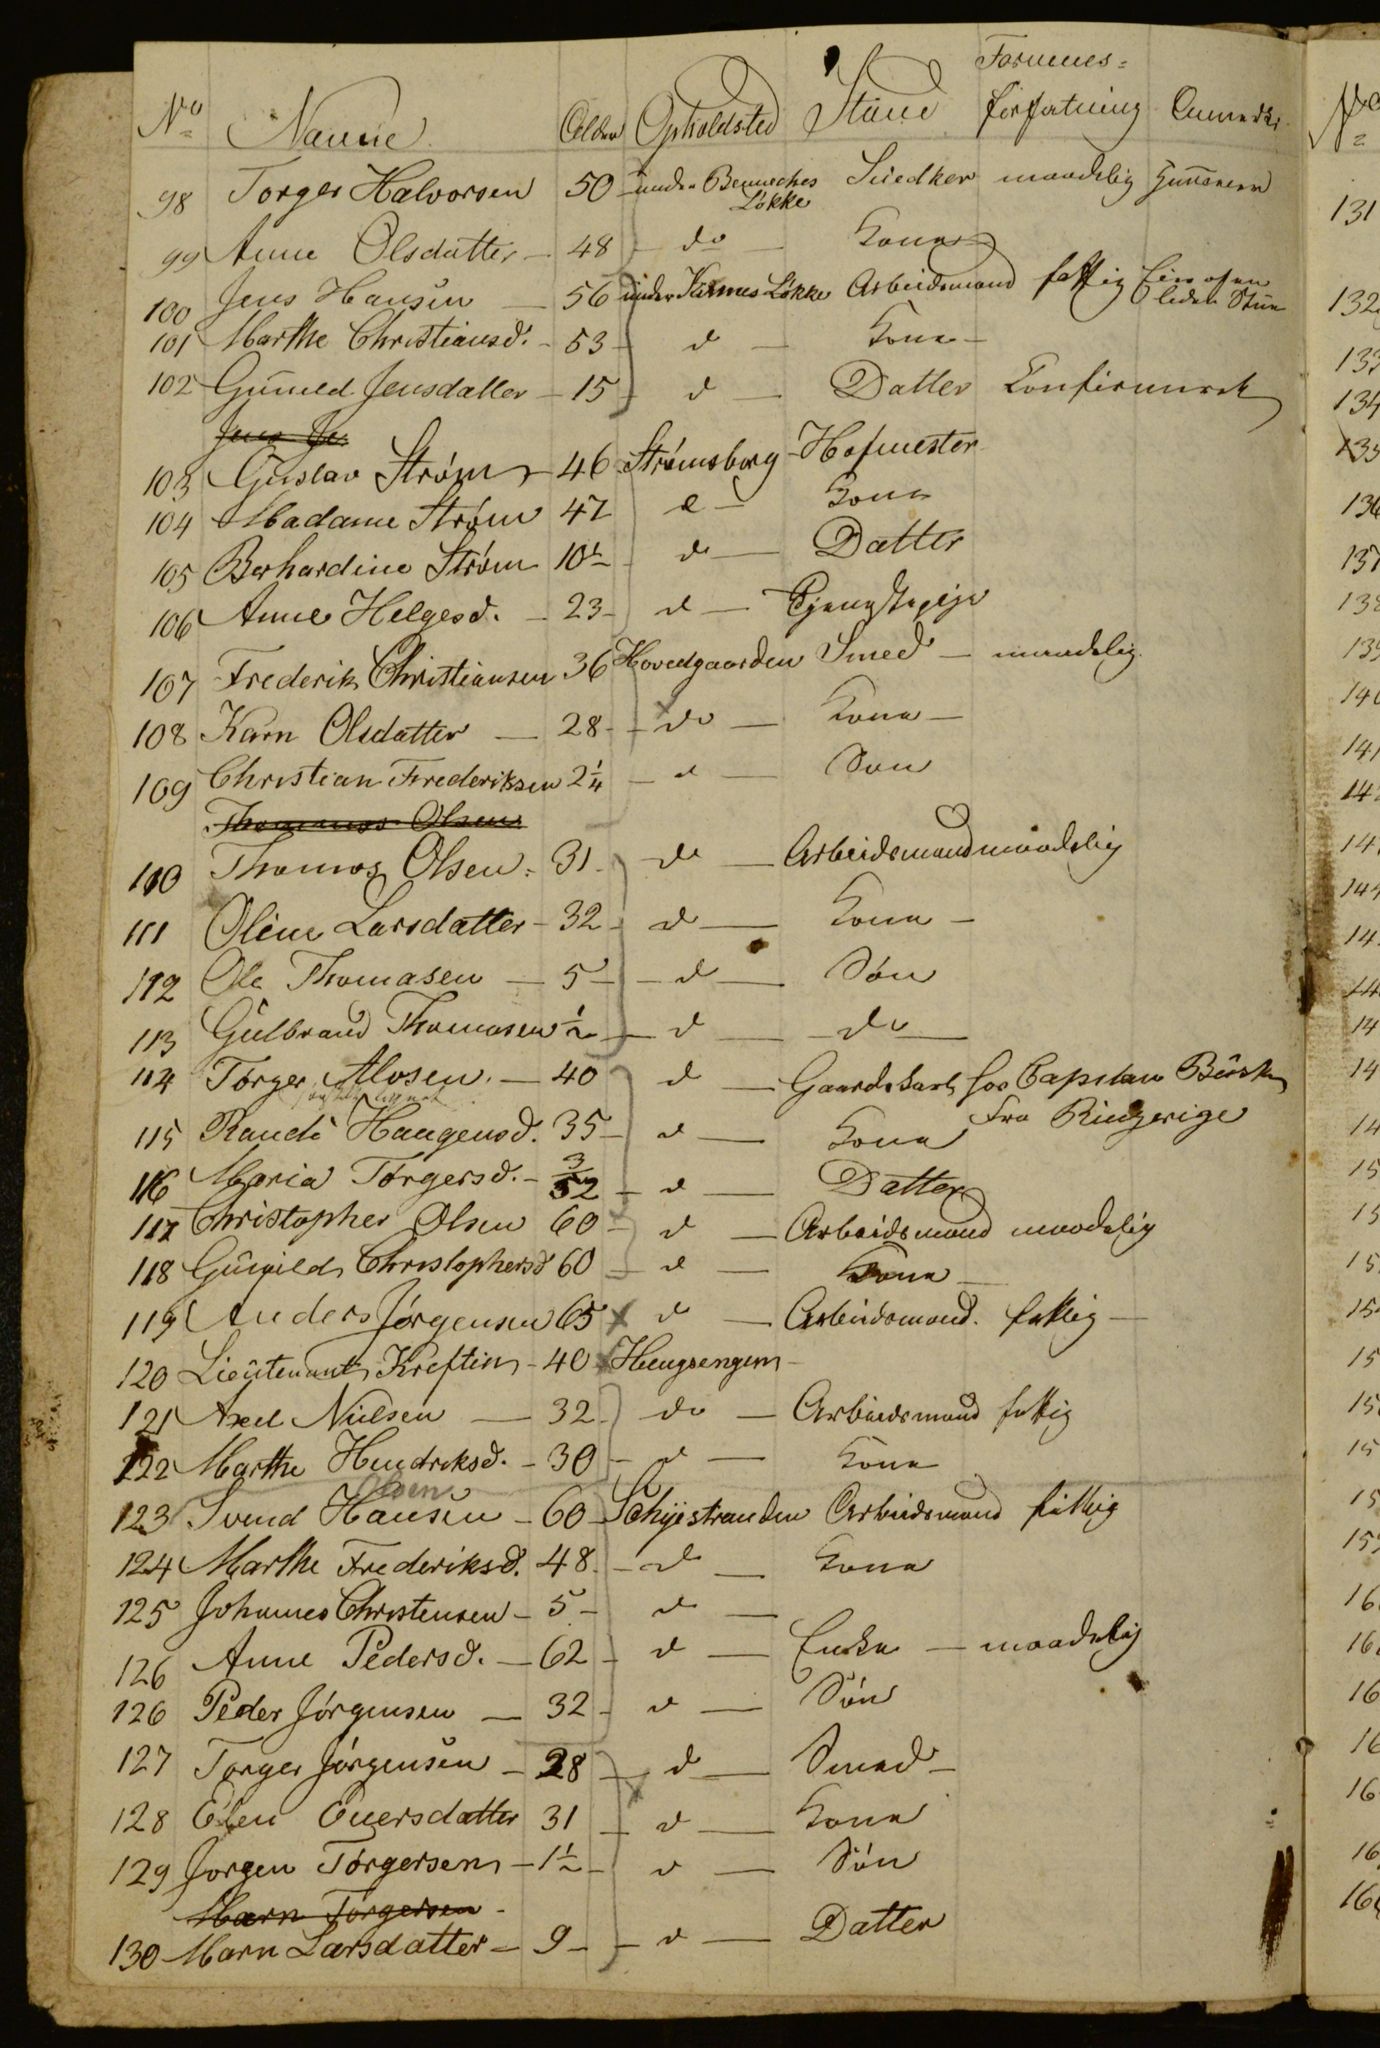 Formues=
No Navne Alder Opholdsted Stand forfatning Anmerk.
98 Torger Halvorsen 50 under Benneches Snedker maadelig
Løkke
99 Anne Olsdatter - 48 do - Kone
100 Jens Hansen - 56 under Løkke Arbeidsmand fattig Eier af en
liden Stue
101 Marthe Christiansd. - 53 - d - Kone -
102 Gunild Jensdatter - 15 d - Datter Konfirmeret
Jens Je
103 Gustav Strøm - 46 Strømsborg - Hofmester
104 Madame Strøm 47 d - Kone
105 Berhardine Strøm 10½ d - Datter
106 Anne Helgesd. - 23 - d - Tjenestepige
107 Frederik Christiansen 36 Hovedgaarden Smed - maadelig
108 Karn Olsdatter - 28 - do - Kone -
109 Christian Frederiksen 2¼ - d - Søn
Thommas Olsen
110 Thomas Olsen - 31 - do - Arbeidsmand maadelig
111 Oline Larsdatter - 32 - d - Kone -
112 Ole Thomasen - 5 - d - Søn
113 Gulbrand Thomasen ½ - d - do -
114 Tørger Alosen. - 40 d - Gaardskarl hos Capitain
115 Randi Haagensd. 35 - d - Kone Fra Ringerige
116 Maria Tørgersd. - 3/52 - d - Datter
117 Christopher Olsen 60 - d - Arbeidsmand maadelig
118 Gunild Christophersd 60 - d - Kone -
119 Anders Jørgensen 65 d - Arbeidsmand. fattig -
120 Lieutenant Kreftin - 40 Hengsengen -
121 Axel Nielsen - 32 do - Arbeidsmand fattig
122 Marthe Hendriksd. - 30 - d - Kone
Olsen
123 Svend Hansen - 60 - Schyestranden Arbeidsmand fattig
124 Marthe Frederiksd. 48 - d - Kone
125 Johannes Christensen - 5 - d -
126 Anne Pedersd. - 62 - d - Enke - maadelig
126 Peder Jørgensen - 32 - d - Søn
127 Torger Jørgensen - 28 - d - Smed -
128 Elen Eversdatter 31 - d - Kone
129 Jorgen Tørgersen - 1½ - d - Søn
Marn Tørgersen -
130 Marn Larsdatter - 9 - d - Datter
No
131
132
133
134
135
136
137
138
139
140
141